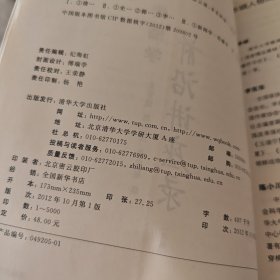 中国版本图书馆CIP数据核字(2012)第
责任编辑：纪海虹
封面设计：傅瑞学
责任校对：王荣静
责任印制：杨 艳
出版发行：清华大学出版社
网 址：http://www.tup.com.cn, http://www.wqbook.com
地 址：北京清华大学学研大厦A座
社总机：010-62770175
投稿与读者服务：010-62776969, c-service@tup.tsinghua.edu.cn
质量反馈：010-62772015, zhiliang@tup.tsinghua.edu.cn
印装者：北京密云胶印厂
经 销：全国新华书店
开 本：173mm×235mm 印 张：27.25 字 数：407千字
版 次：2012年10月第1版 印 次：2012年
印 数：1~5000
定 价：48.00元
产品编号：049205-01